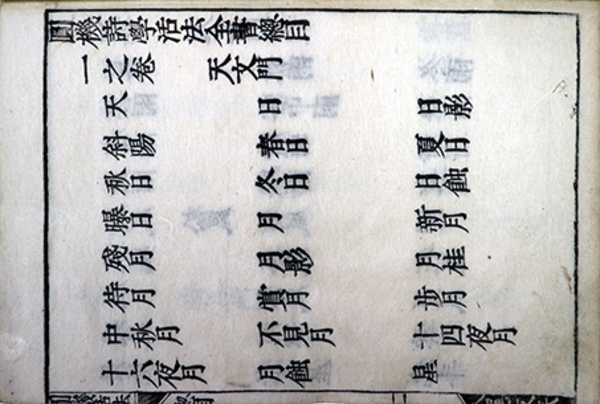 圓機詩學活法全書總目
一之卷 天文門
天 日 日影
斜陽 春日 夏日
秋日 冬日 日蝕
曝日 月 新月
殘月 月影 月桂
待月 賞月 步月
中秋月 不見月 十四夜月
十六夜月 月蝕 星